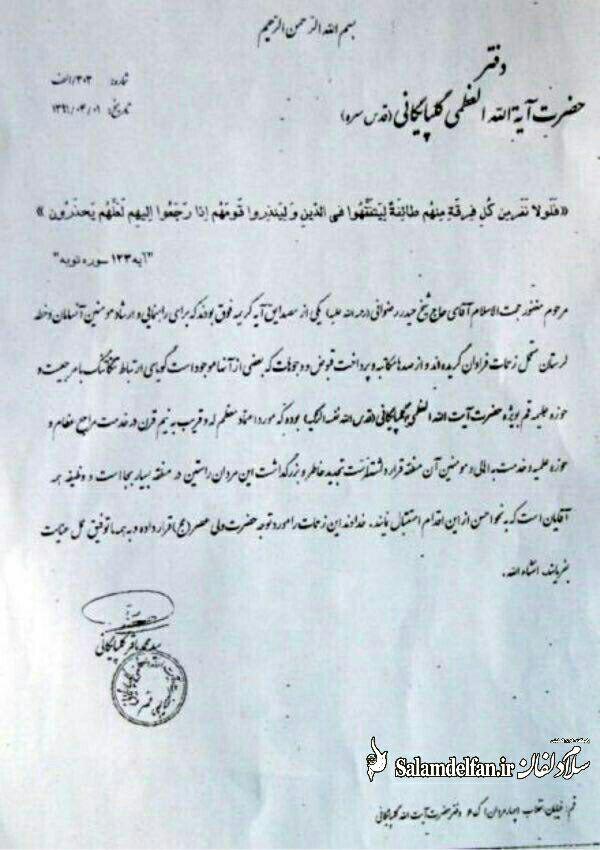 بسم الله الرحمن الرحیم
دفتر
حضرت آیة الله العظمی گلپایگانی (قدس سره)
شماره: ۳۰۳/الف
تاریخ: ۱۳۹۱/۰۴/۰۱
«فَلَولا نَفَرمِن کُلِ فِرقَةٍ مِنهُم طائِفَةٌ لِیَتَفَقَّهُوا فی الدّینِ وَ لِیُنذِروا قَومَهُم اِذا رَجَعُوا اِلَیهِم لَعَلَّهُم یَحذَرُون»
"آیه ۱۲۳ سوره توبه"
مرحوم مغفور حجت الاسلام آقای حاج شیخ حیدر رضوانی (رحمه الله علیه) یکی از مصادیق آیه کریمه فوق بودند که برای راهنمایی و ارشاد مومنین آنسامان و خطه
لرستان متحمل زحمات فراوان گردیده اند و از صدها مکاتبه و پرداخت قبوض و وجوهات که بعضی از آنها موجود است گویای ارتباط تنگاتنگ با مرجعیت و
حوزه علمیه قم بویژه حضرت آیت الله العظمی گلپایگانی (قدس الله نفسه الزکیه) بوده که مورد اعتماد معظم له و قریب به نیم قرن در خدمت مراجع عظام و
حوزه علمیه و خدمت به اهالی و مومنین آن منطقه قرار داشته است تجدید خاطر و بزرگداشت این مردان راستین در منطقه بسیار بجا است و وظیفه همه
آقایان است که به نحو احسن از این اقدام استقبال نمایند. خداوند این زحمات را مورد توجه حضرت ولی عصر (عج) قرار داده و به همه ما توفیق عمل عنایت
بفرمایند انشاء الله.
سید محمد باقر گلپایگانی
سلام دلفان
Salamdelfan.ir
قم: خیابان انقلاب (چهارمردان) ک ۶ دفتر حضرت آیت الله گلپایگانی